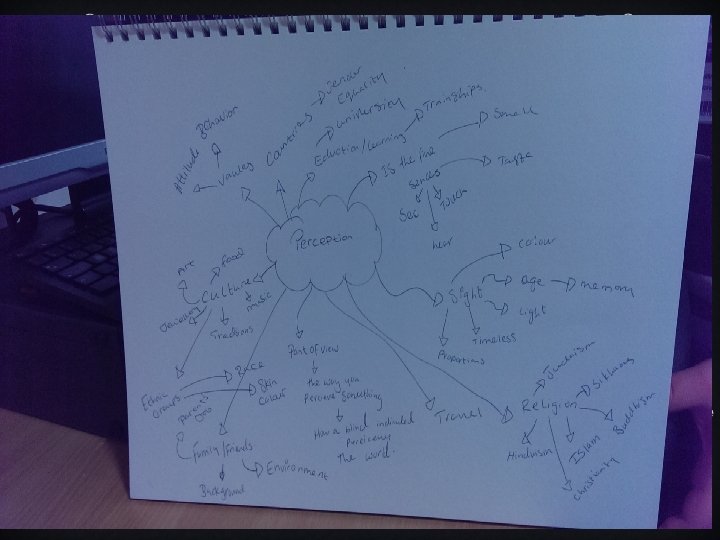 Gender
Equality
Behavior
University
Trainghips.
Education/Learning
Attitude
Values
Smell
IS the five
senses
Taste
See
Touch
hear
Perception
Colour
Art
food
Culture
music
Jewellery
Traditions
Sight
age
memory
Light
Timeless
Proportions
Point of view
the way you
Perceive Something
How a blind individual
the world.
Race
Skin
Colour
Ethnic
Groups
Family/Friends
Environment
Background
Travel
Religion
Judaism
Buddhism
Hinduism
Islam
Christianity